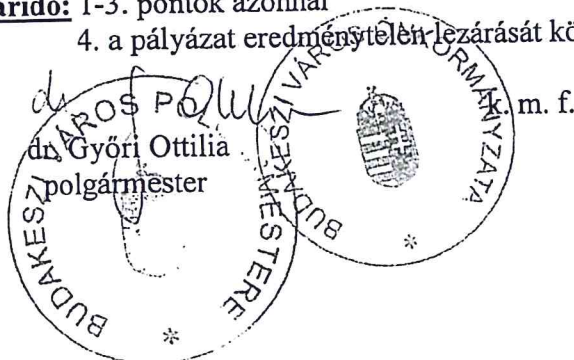 áridő: 1-3. pontok azonnal
4. a pályázat eredménytelen lezárását kö
k. m. f.
dr. Győri Ottilia
polgármester
BUDAKESZI VÁROS POLGÁRMESTERE *
BUDAKESZI VÁROS ÖNKORMÁNYZATA *